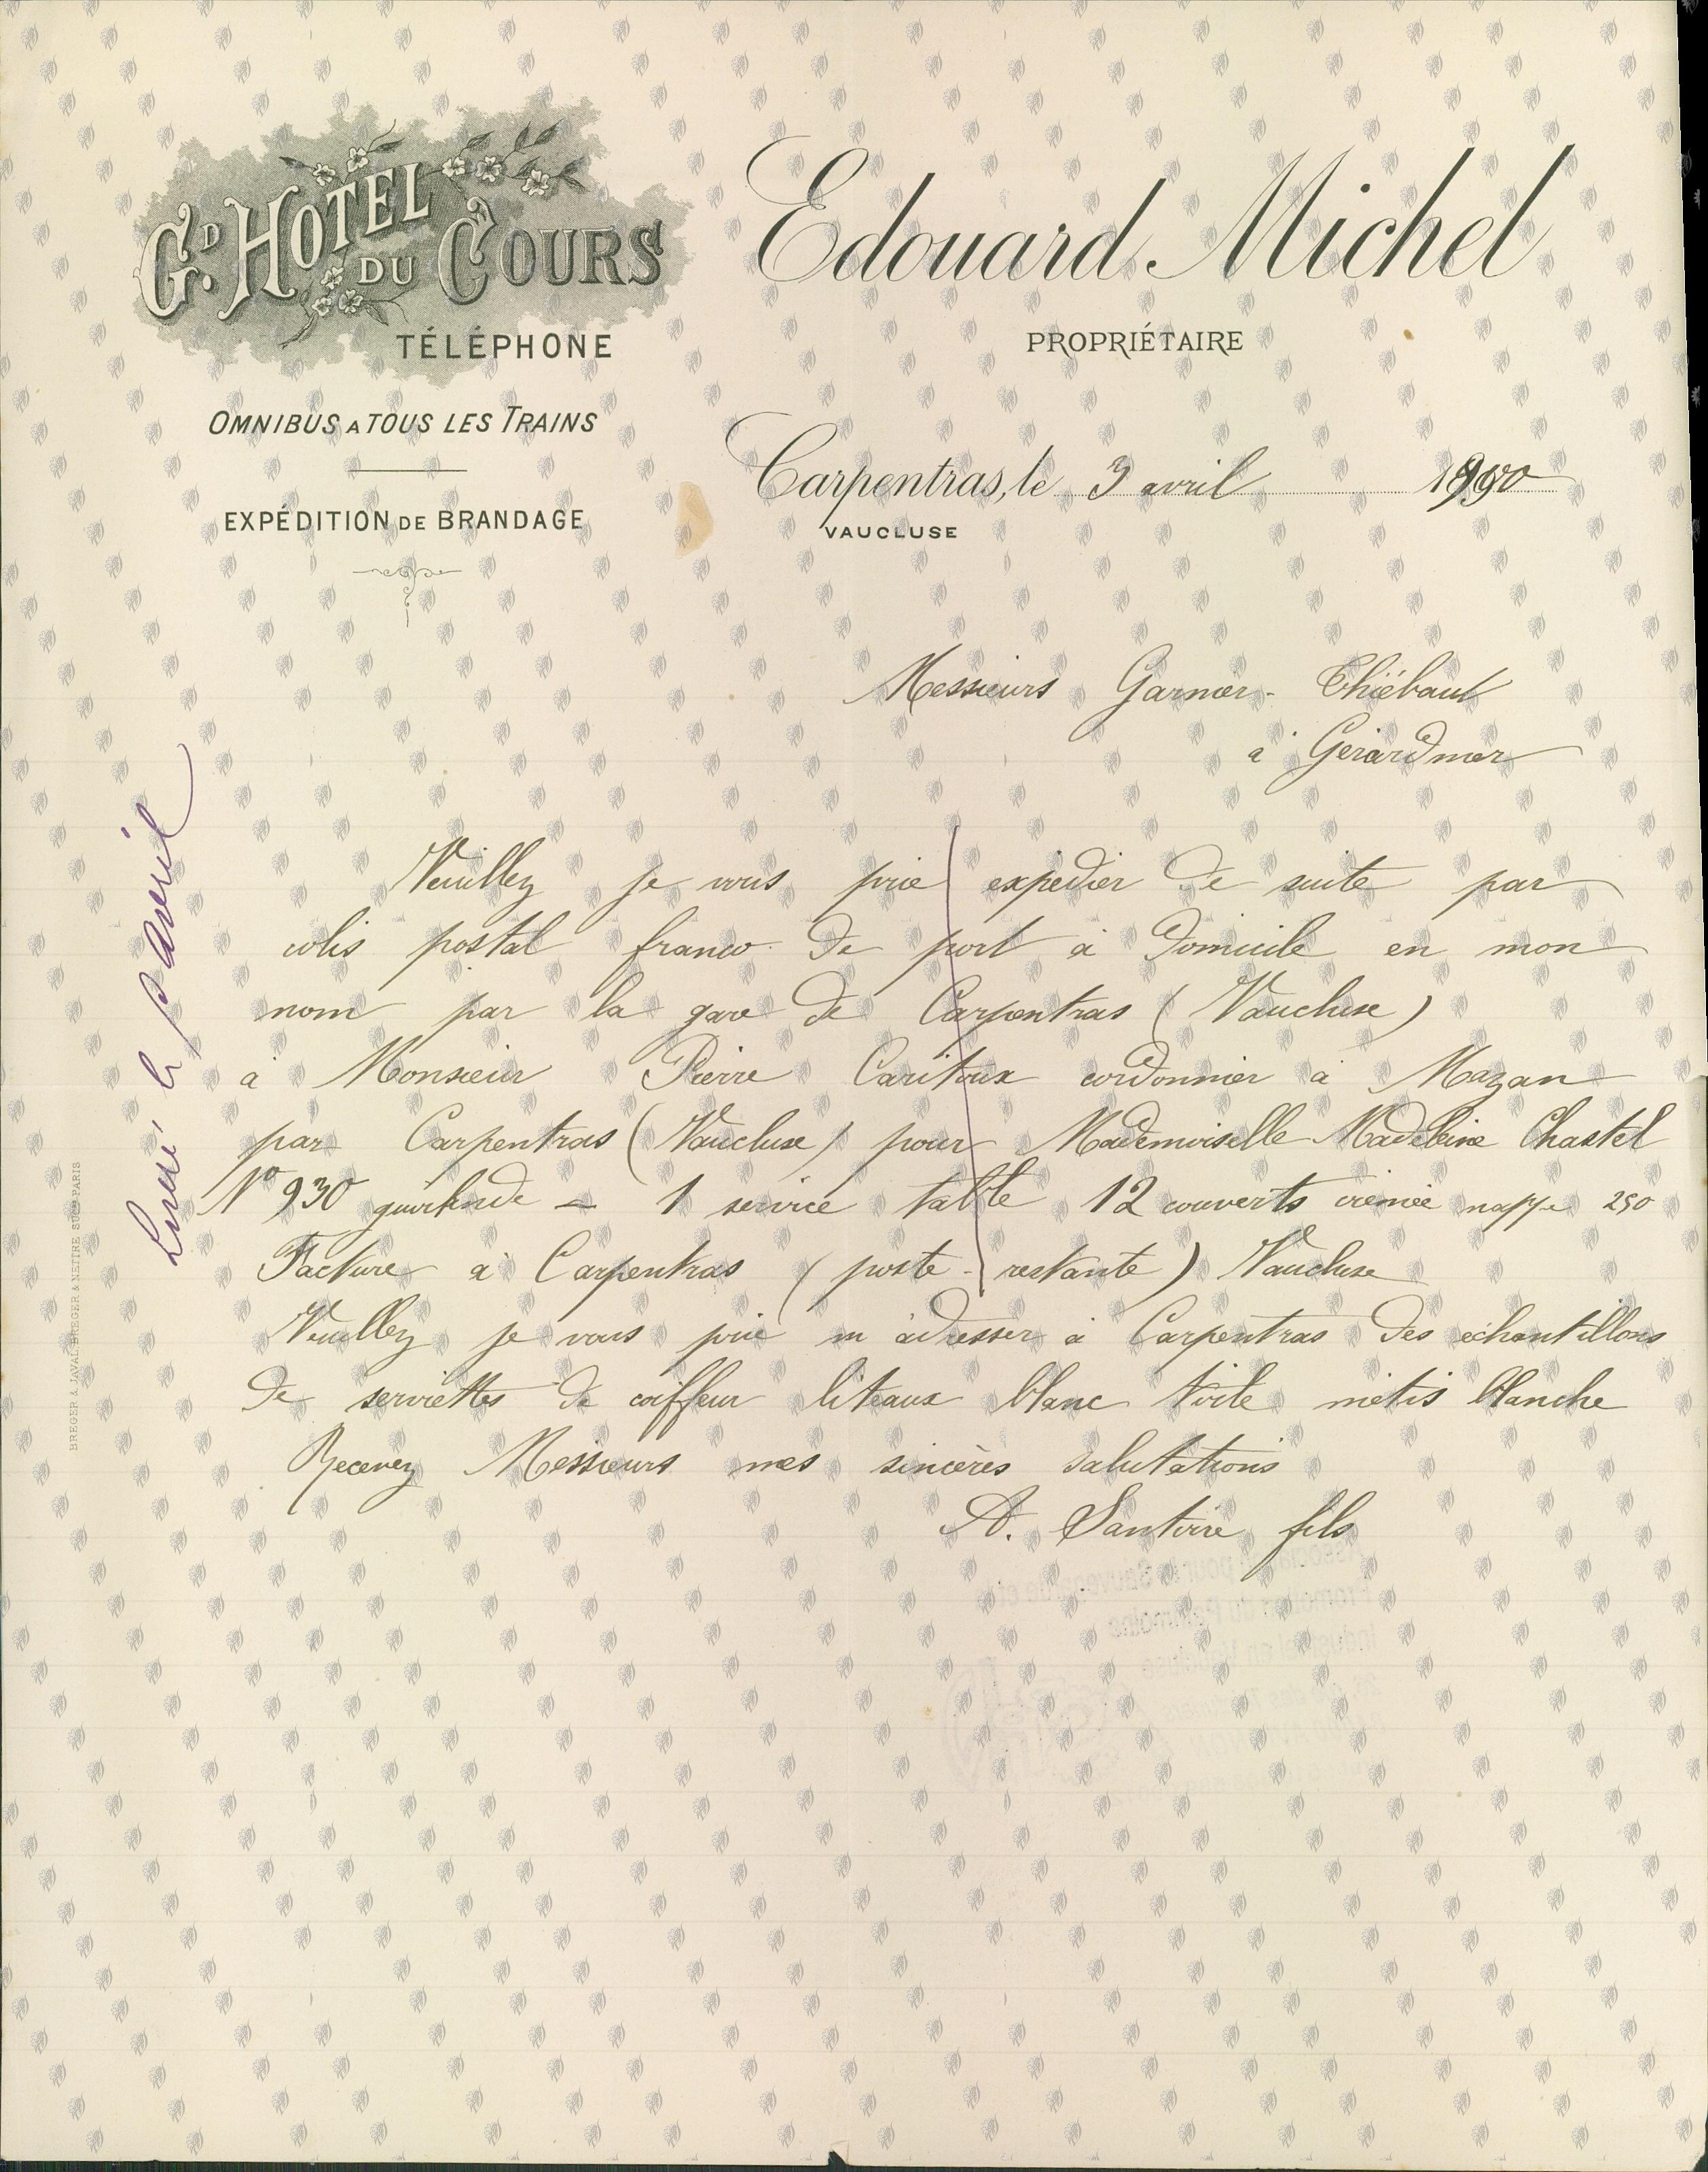 GD HOTEL DU COURS
TÉLÉPHONE
OMNIBUS A TOUS LES TRAINS
EXPÉDITION DE BRANDAGE
Edouard Michel
PROPRIÉTAIRE
Carpentras, le 3 avril 1900
VAUCLUSE
Messieurs Garnier-Thiébaut
à Gérardmer
Veuillez je vous prie expedier de suite par
colis postal franco de port à domicile en mon
nom par la gare de Carpentras (Vaucluse)
à Monsieur Pierre Caritoux cordonnier à Mazan
par Carpentras (Vaucluse) pour Mademoiselle Madeleine Chastel
N° 930 guirlande = 1 service table 12 couverts crémée nappe 250
Facture à Carpentras (poste-restante) Vaucluse
Veuillez je vous prie m'adresser à Carpentras des échantillons
de serviettes de coiffeur liteaux blanc toile métis blanche
Recevez Messieurs mes sincères salutations
A. Santoire fils
Livré le
BREGER & JAVAL. BREGER & NETTRE SUCrs PARIS